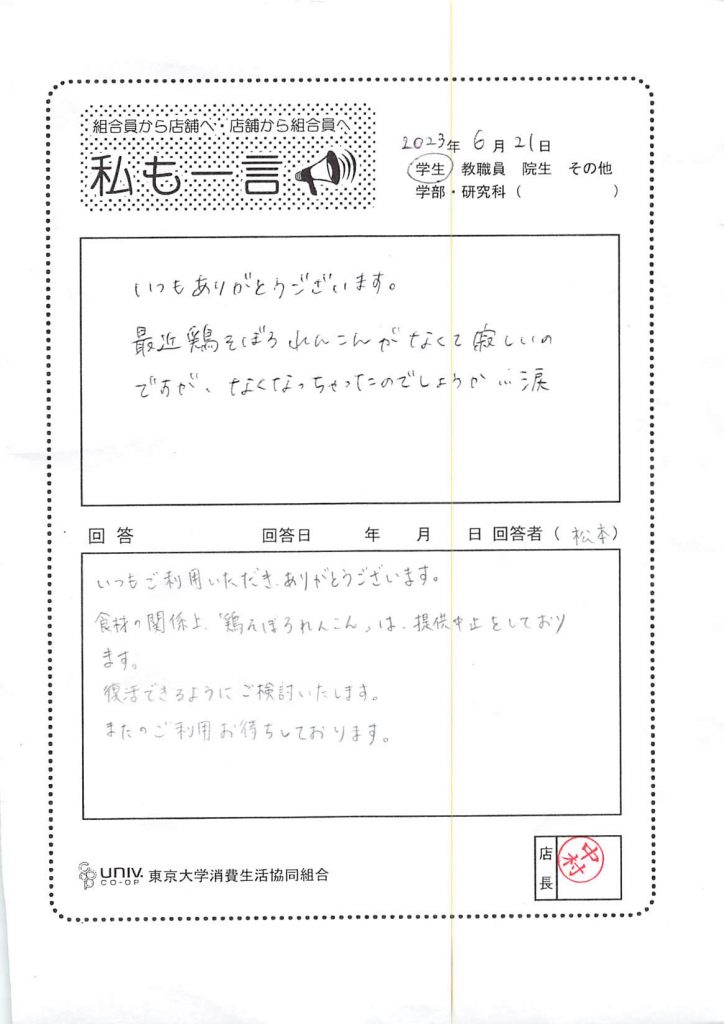 組合員から店舗へ・店舗から組合員へ
私も一言
2023年 6月 21日
学生 教職員 院生 その他
学部・研究科 ( )
いつもありがとうございます。
最近鶏そぼろれんこんがなくて寂しいの
ですが、なくなっちゃったのでしょうか…涙
回答 回答日 年 月 日 回答者 ( 松本 )
いつもご利用いただき、ありがとうございます。
食材の関係上、「鶏そぼろれんこん」は、提供中止をしており
ます。
復活できるようにご検討いたします。
またのご利用お待ちしております。
coop UNIV. CO-OP 東京大学消費生活協同組合
店長 中村